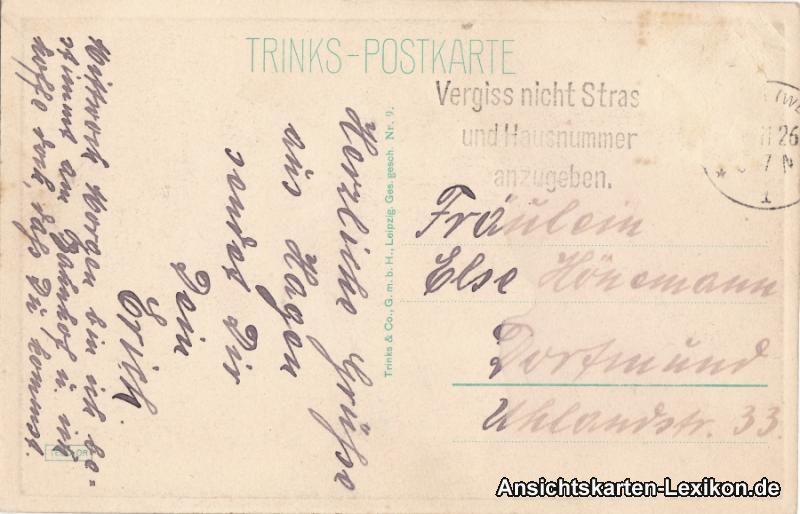 TRINKS-POSTKARTE
Vergiss nicht Stras
und Hausnummer
anzugeben.
II 26
7 N
* 1
Herzliche Grüße
aus Hagen
sendet Dir
Dein
Erich.
Mittwoch Morgen bin ich be=
stimmt am Bahnhof u. ich
hoffe doch, daß Du kommst.
Trinks & Co., G. m. b. H., Leipzig. Ges. gesch. Nr. 9.
Fräulein
Else Hönemann
Dortmund
Uhlandstr. 33.
Ansichtskarten-Lexikon.de